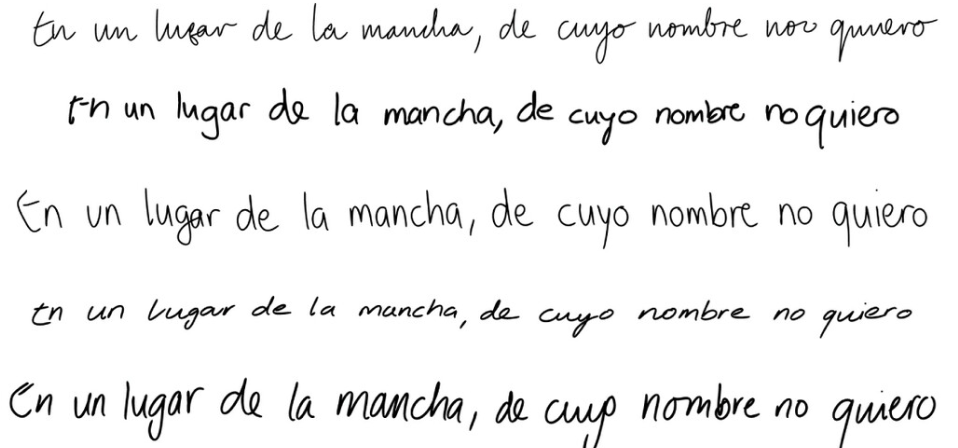 En un lugar de la mancha, de cuyo nombre no quiero
En un lugar de la mancha, de cuyo nombre no quiero
En un lugar de la mancha, de cuyo nombre no quiero
En un lugar de la mancha, de cuyo nombre no quiero
En un lugar de la mancha, de cuyo nombre no quiero